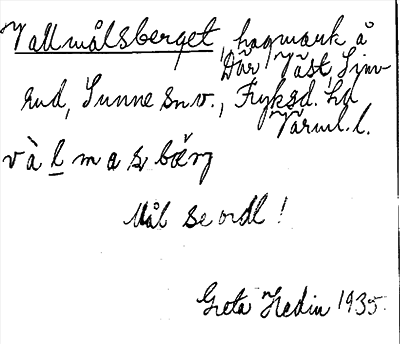 Vallmålsberget, hagmark å
Där Väst, Sinv
rud, Sunne snv., Fryksd. hd
Värml. l.
vàlmasbärg
Mål se ordl!
Greta Hedin 1935.